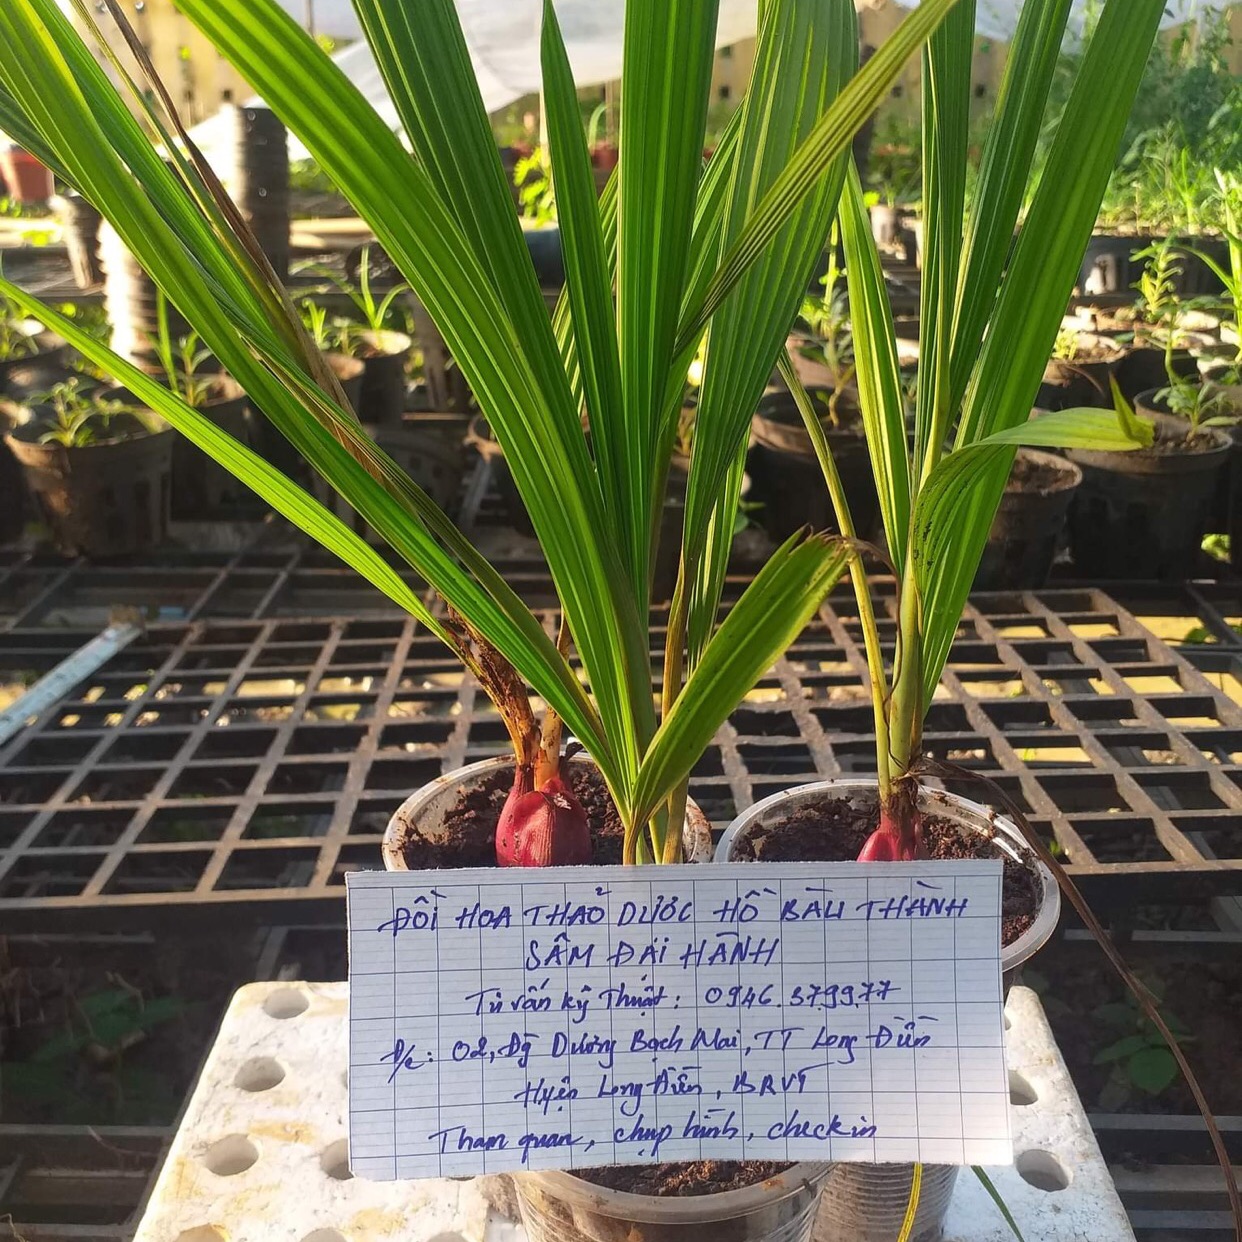 ĐỒI HOA THẢO DƯỢC HỒ BÀU THÀNH
SÂM ĐẠI HÀNH
Tư vấn kỹ Thuật: 0946.379977
Đ/c: 02, Đg Dương Bạch Mai, TT Long Điền
Huyện Long Điền, BRVT
Tham quan, chụp hình, checkin